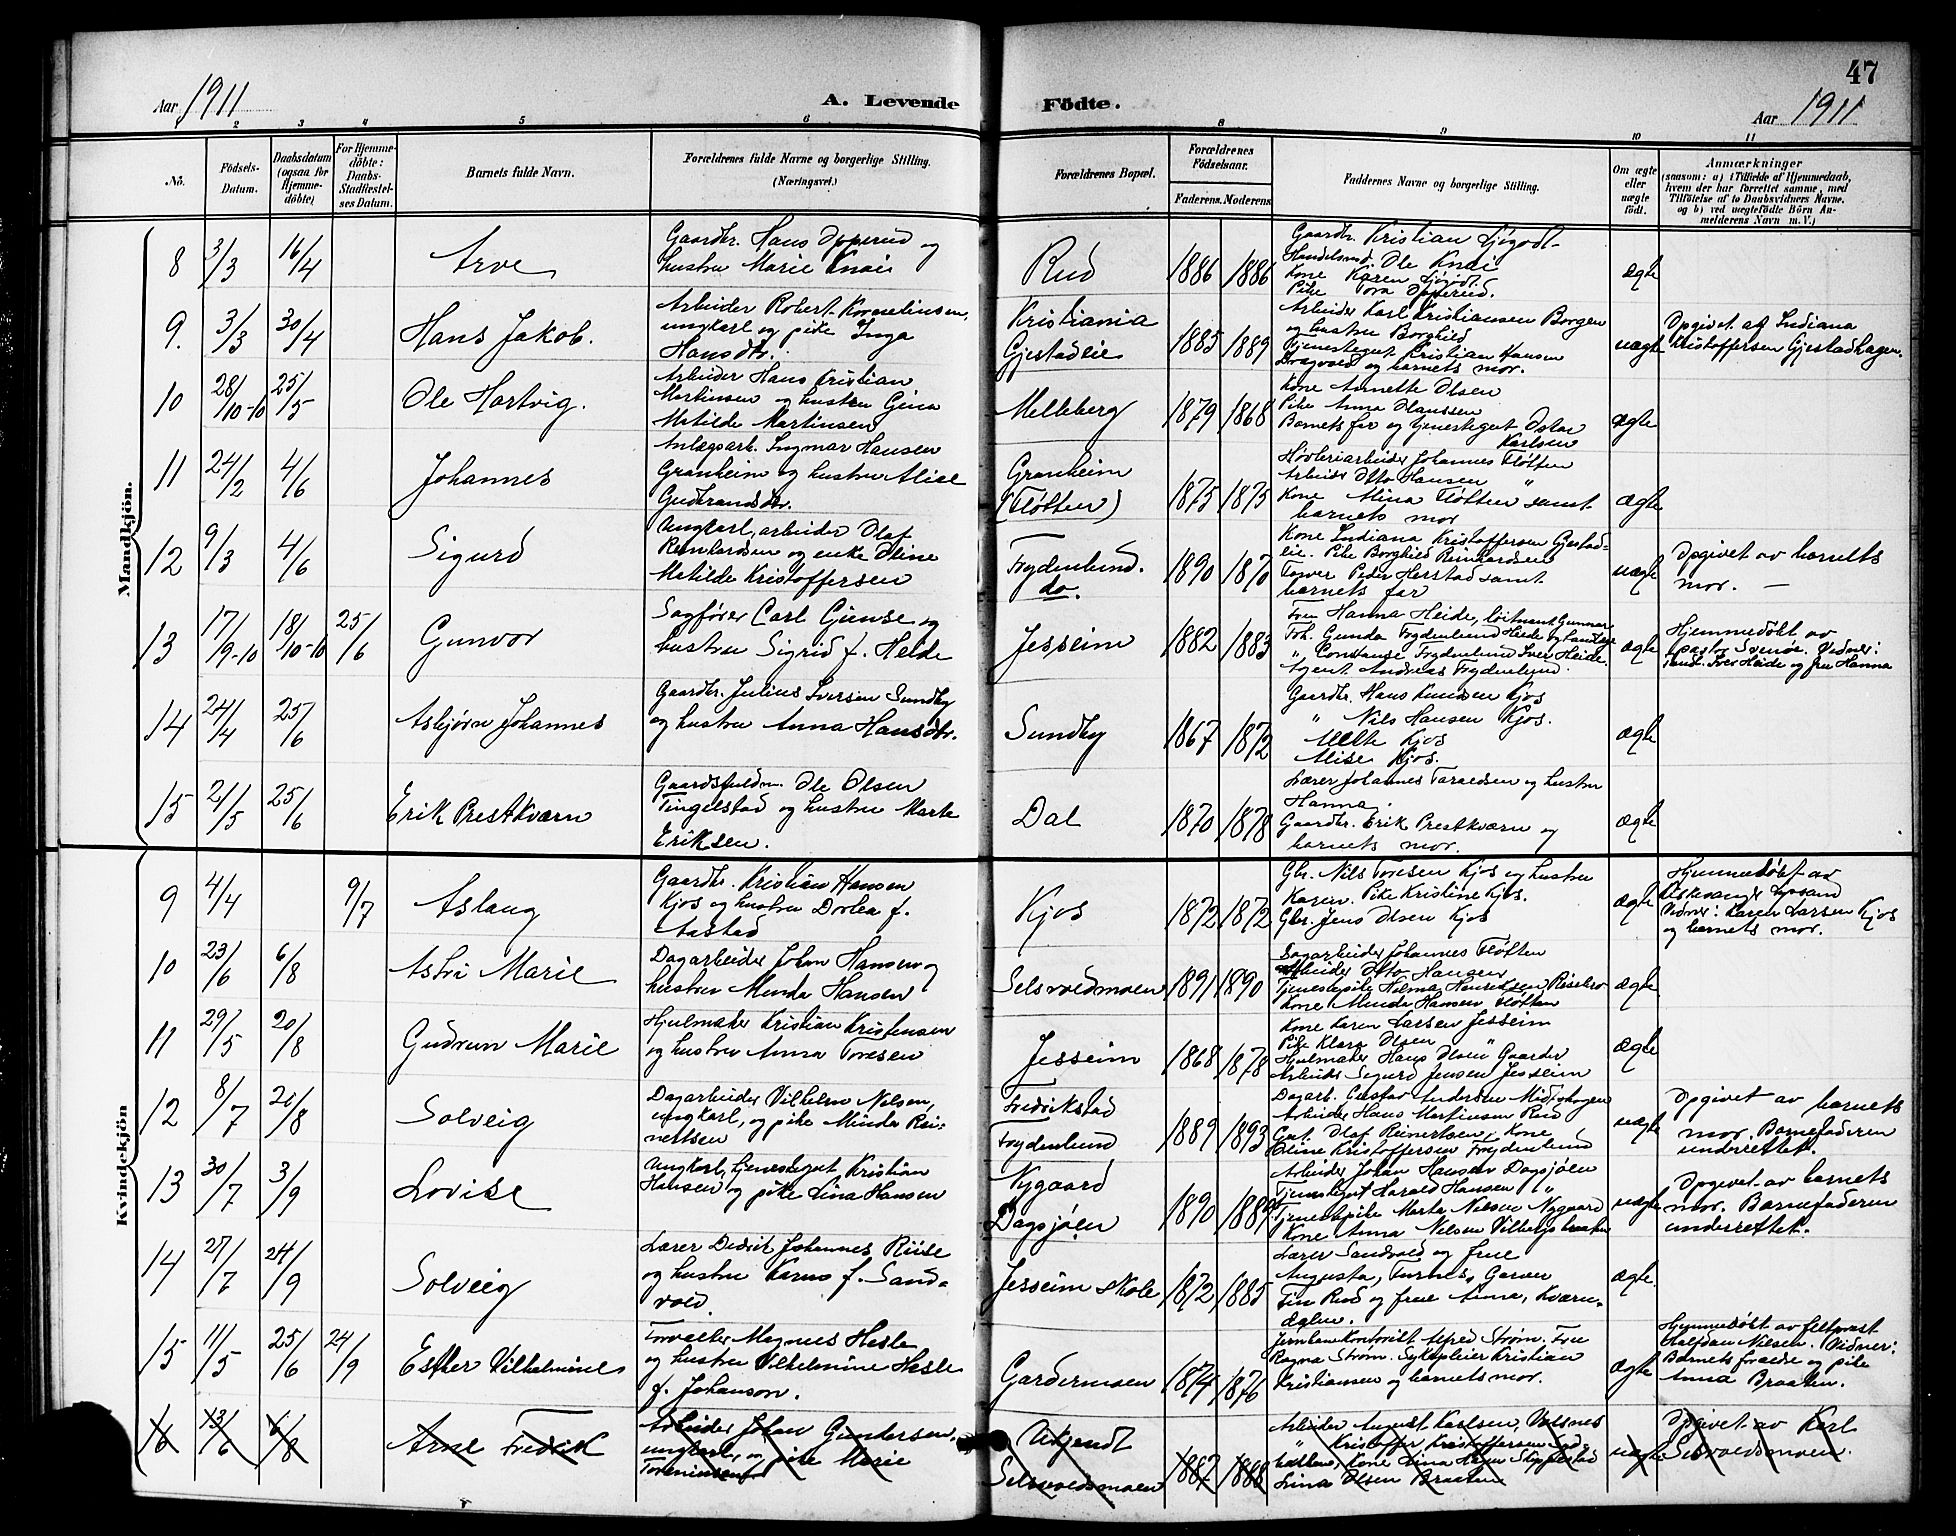 47
Aar 1911
A. Levende
Födte.
Aar 1911
2 3 4 5 6 8 9 10 11
No.
Födsels-Datum.
Daabsdatum (ogsaa for Hjemmedöbte)
For Hjemmedöbte: Daabs-Stadfæstelses Datum.
Barnets fulde Navn.
Forældrenes fulde Navne og borgerlige Stilling.
(Næringsvei.)
Forældrenes Bopæl.
Forældrenes Födselsaar.
Faderens. Moderens
Faddernes Navne og borgerlige Stilling.
Om ægte eller uægte födt.
Anmærkninger
(saasom: a) i Tilfælde af Hjemmedaab,
hvem der har forrettet samme, med
Tilföielse af to Daabsvidners Navne.
og b) ved uægtefödte Börn An-
melderens Navn m. V.)
Mandkjön.
8 3/3 16/4
Arve
Gaardbr. Hans Opperud og
hustru Marie Knai
Rud
1886 1886
Gaardbr. Kristian Sjögodt
Handelsmd. Ole Knai
Kone Karen Sjögodt.
Pike Tora Opperud.
ægte
9. 3/3 30/4
Hans Jakob.
Arbeider Robert Korneliussen,
ungkarl og pike Inga
Hansdtr.
Kristiania
Gjestadlie
1885 1889
Arbeider Karl Kristiansen Borgen
og hustru Borghild
Tjenestegut Kristian Hansen
Dragvold og barnets mor.
uægte
Opgivet af Indiana
Kristoffersen Gjestadhagen.
10 28/10-10 25/5
Ole Hartvig.
Arbeider Hans Kristian
Martinsen og hustru Gina
Matilde Martinsen
Melleberg
1879 1868
Kone Annette Olsen
Pike Anna Hanssen
Barnets far og tjenestegut Oskar
Karlsen
ægte
11 24/2 4/6
Johannes
Anlægsarb. Ingmar Hansen
Granheim og hustru Alise
Gudbrandsdtr.
Granheim
(Fløtten)
1875 1875
Høvleriarbeider Johannes Fløtten
Arbeider Otto Hansen "
Kone Mina Fløtten samt
barnets mor
ægte
12 9/3 4/6
Sigurd
Ungkarl, arbeider Olaf
Reinhardsen og enke Oline
Matilde Kristoffersen
Frydenlund.
do.
1890 1870
Kone Indiana Kristoffersen Gjestad-
lie. Pike Borghild Reinhardsen
Farver Peder Herstad samt
barnets far
uægte
Opgivet av barnets
mor. —
13 17/9-10 18/10-10 25/6
Gunvor
Sagfører Carl Gjense og
hustru Sigrid f. Heide
Jesseim
1882 1883
Fru Hanna Heide, løitnant Gunnar
Frk. Gunda Frydenlund Heide og landbr.
" Constanse Frydenlund Iver Heide
Agent Andreas Frydenlund.
ægte
Hjemmedøbt av
pastor Svenøe. Vidner:
landbr. Iver Heide og fru Hanna
14 24/4 25/6
Asbjørn Johannes
Gaardbr. Julius Iversen Sundby
og hustru Anna Hansdtr.
Sundby
1867 1872
Gaardbr. Hans Knudsen Kjos
" Nils Hansen Kjos.
Mette Kjos
Alise Kjos.
ægte
15 21/5 25/6
Erik Prestkværn
Gaardsfuldm. Ole Olsen
Tingelstad og hustru Marte
Eriksen.
Dal
1870 1878
Lærer Johannes Taraldsen og hustru
Hanna.
Gaardbr. Erik Prestkværn og
barnets mor.
ægte
Kvindekjön
9 4/4 9/7
Aslaug
Gaardbr. Kristian Hansen
Kjos og hustru Dorthea f.
Aastad
Kjos
1872 1872
Gbr. Nils Toresen Kjos og hustru
Karen. Pike Kristine Kjos.
Gbr. Jens Olsen Kjos
ægte
Hjemmedøbt av
Vidner: Karen Larsen Kjos
og barnets mor.
10 23/6 6/8
Astri Marie
Dagarbeider Johan Hansen og
hustru Minda Hansen
Selsvoldmoen
1891 1890
Dagarbeider Johannes Fløtten
Arbeider Otto Hansen
Tjenestepike Helma Henriksen Risebro
Kone Minda Hansen Fløtten
ægte
11 29/5 20/8
Gudrun Marie
Hjulmaker Kristian Kristensen
og hustru Anna Toresen
Jesseim
1868 1878
Kone Karen Larsen Jesseim
Pike Klara Olsen "
Hjulmaker Hans Olsen Gaarder
Arbeider Sigurd Jensen Jesseim
ægte
12 8/7 20/8
Solveig
Dagarbeider Vilhelm Nilsen,
ungkarl, og pike Minda Rei-
nertsen
Fredrikstad
Frydenlund
1889 1893
Dagarb. Gustav Andersen
Arbeider Hans Martinsen Rud
Gut. Olaf Reinertsen, Kone
Oline Kristoffersen Frydenlund
uægte
Opgivet av barnets
mor. Barnefaderen
underrettet.
13 30/7 3/9
Lovise
Ungkarl, tjenestegut Kristian
Hansen og pike Lina Hansen
Nygaard
Dagsjøen
1890 1889
Arbeider Johan Hansen Dagsjøen
Tjenestegut Harald Hansen "
Tjenestepike Marta Nilsen Nygaard
Kone Anna Nilsen Vilbergsbraaten
uægte
Opgivet av barnets
mor. Barnefaderen
underrettet.
14 27/7 24/9
Solveig
Lærer Didrik Johannes Riise
og hustru Karen f. Sand-
vold.
Jesseim skole
1872 1885
Lærer Sandvold og frue
Augusta, Turnes, Garver
Finn Rud og frue Anna, Kværn-
dalen.
ægte.
15 11/5 25/6 24/9
Esther Vilhelmine
Forvalter Magnus Hesle
og hustru Vilhelmine Hesle
f. Johanson.
Gardermoen
1874 1876
Jernbanekontorist Alfred Strøm. Fru
Ragna Strøm. Sykepleier Kristian
Kristiansen og barnets mor.
ægte
Hjemmedøbt av feltprest
Halfdan Nilsen. Vidner:
Barnets forældre og pike
Anna Braaten.
16 13/6 6/8
Arne Fredrik
Arbeider Johan Gundersen,
ungkarl, og pike Marie
Ukjendt
Selsvoldsmoen
1887 1888
Arbeider August Karlsen,
" Kristoffer Kristoffersen
Kone Lina
Lina Olsen Braaten
uægte
Opgivet av Karl
Selsvoldsmoen.